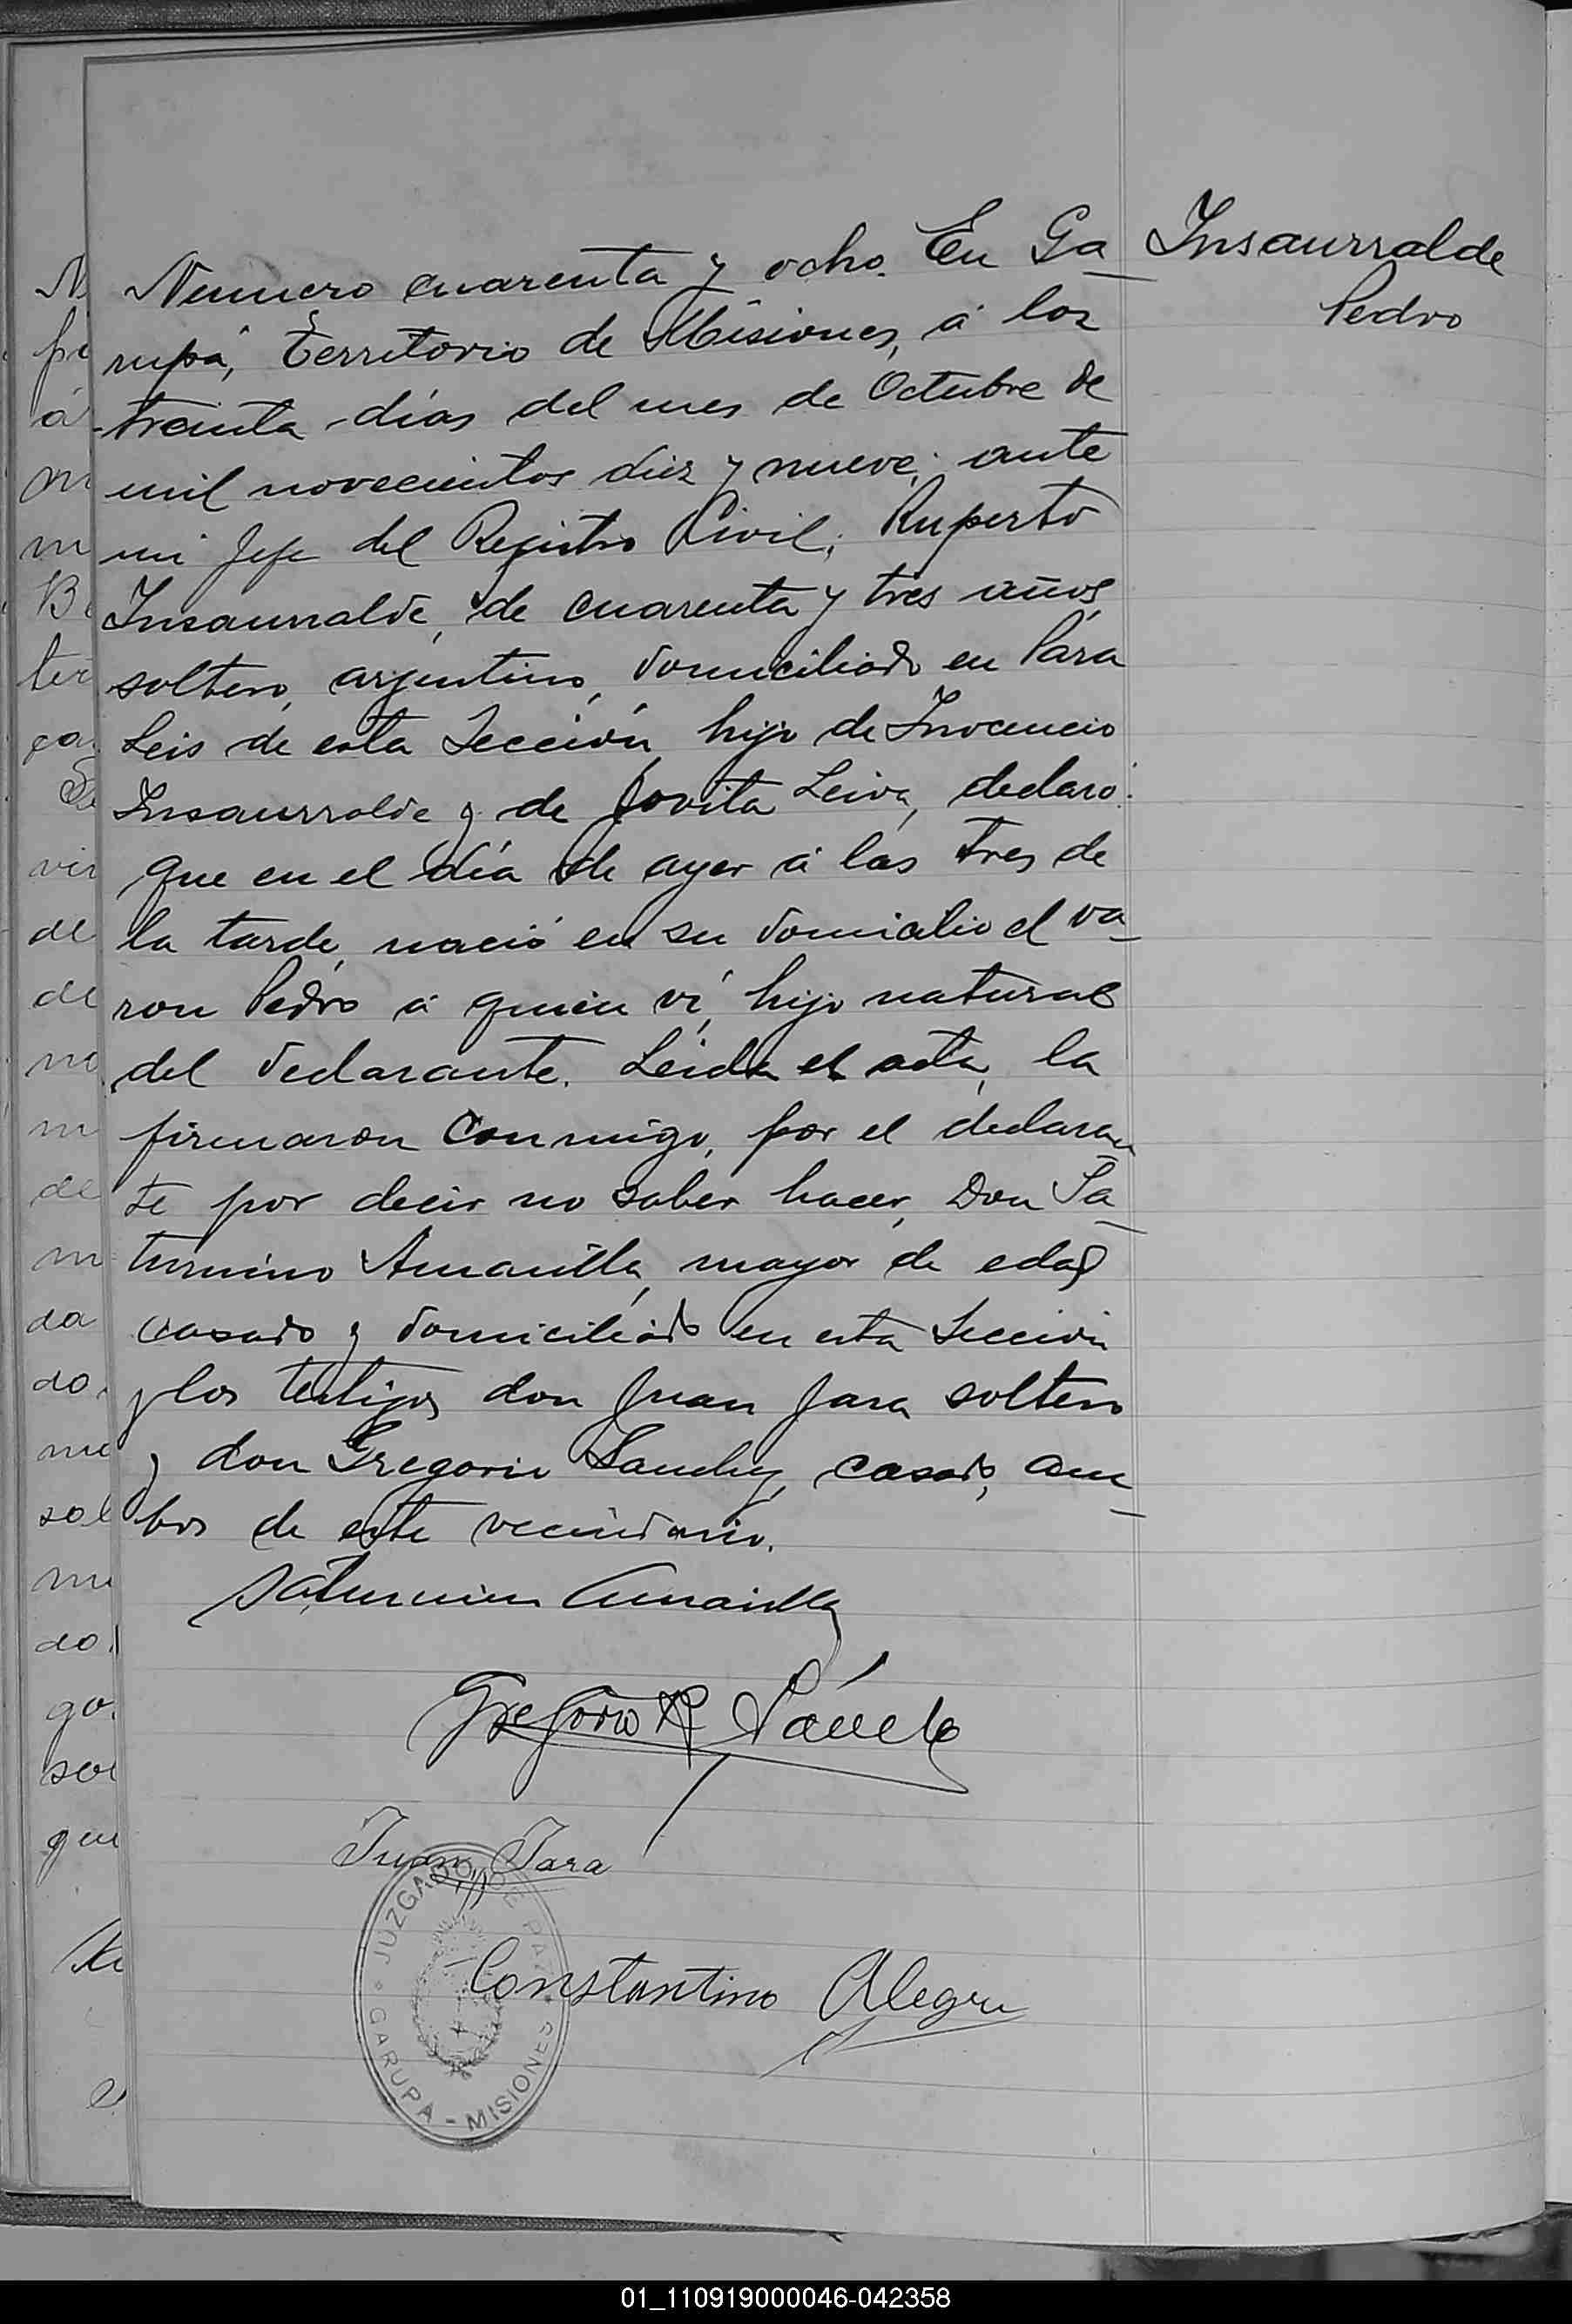 Insaurralde
Pedro
Numero cuarenta y ocho. En Ga_
rupá, territorio de Misiones, á los
treinta dias del mes de Octubre de
mil novecientos diez y nueve; ante
mi Jefe del Registro Civil; Ruperto
Insaurralde, de cuarenta y tres años,
soltero, argentino, domiciliado en Para
Leis de esta Sección, hijo de Inocencio
Insaurralde y de Jovita Leiva, declaro:
que en el día de ayer á las tres de
la tarde, nació en su domicilio el va_
ron Pedro á quien ví, hijo natural
del declarante. Leida el acta, la
firmaron conmigo, por el declaran
te por decir no saber hacer, Don Sa_
turnino Amarilla, mayor de edad
casado y domiciliado en esta Sección
y los testigos don Juan Jara soltero
y don Gregorio Sanchez, casado, am_
bos de este vecindario.
Saturnino Amarilla
Gregorio R
Juan Jara
Constantino Alegre
JUZGADO DE PAZ
GARUPA - MISIONES
N
pi
á
m
m
B
ter
ga
vir
de
de
no
m
de
m
da
do.
me
sol
mi
do.
go.
sol
que
01_110919000046-042358